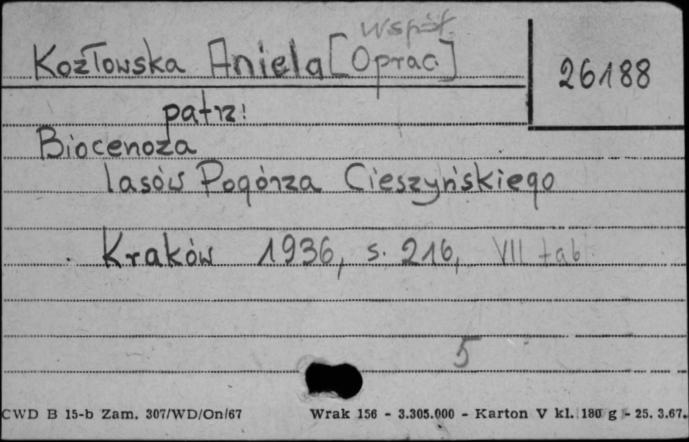 Współ.
Kozłowska Aniela [Oprac.]
26188
patrz:
Biocenoza
lasów Pogórza Cieszyńskiego
Kraków 1936, s. 216, VII tab
5
CWD B 15-b Zam. 307/WD/On/67 Wrak 156 - 3.305.000 - Karton V kl. 180 g - 25. 3.67.